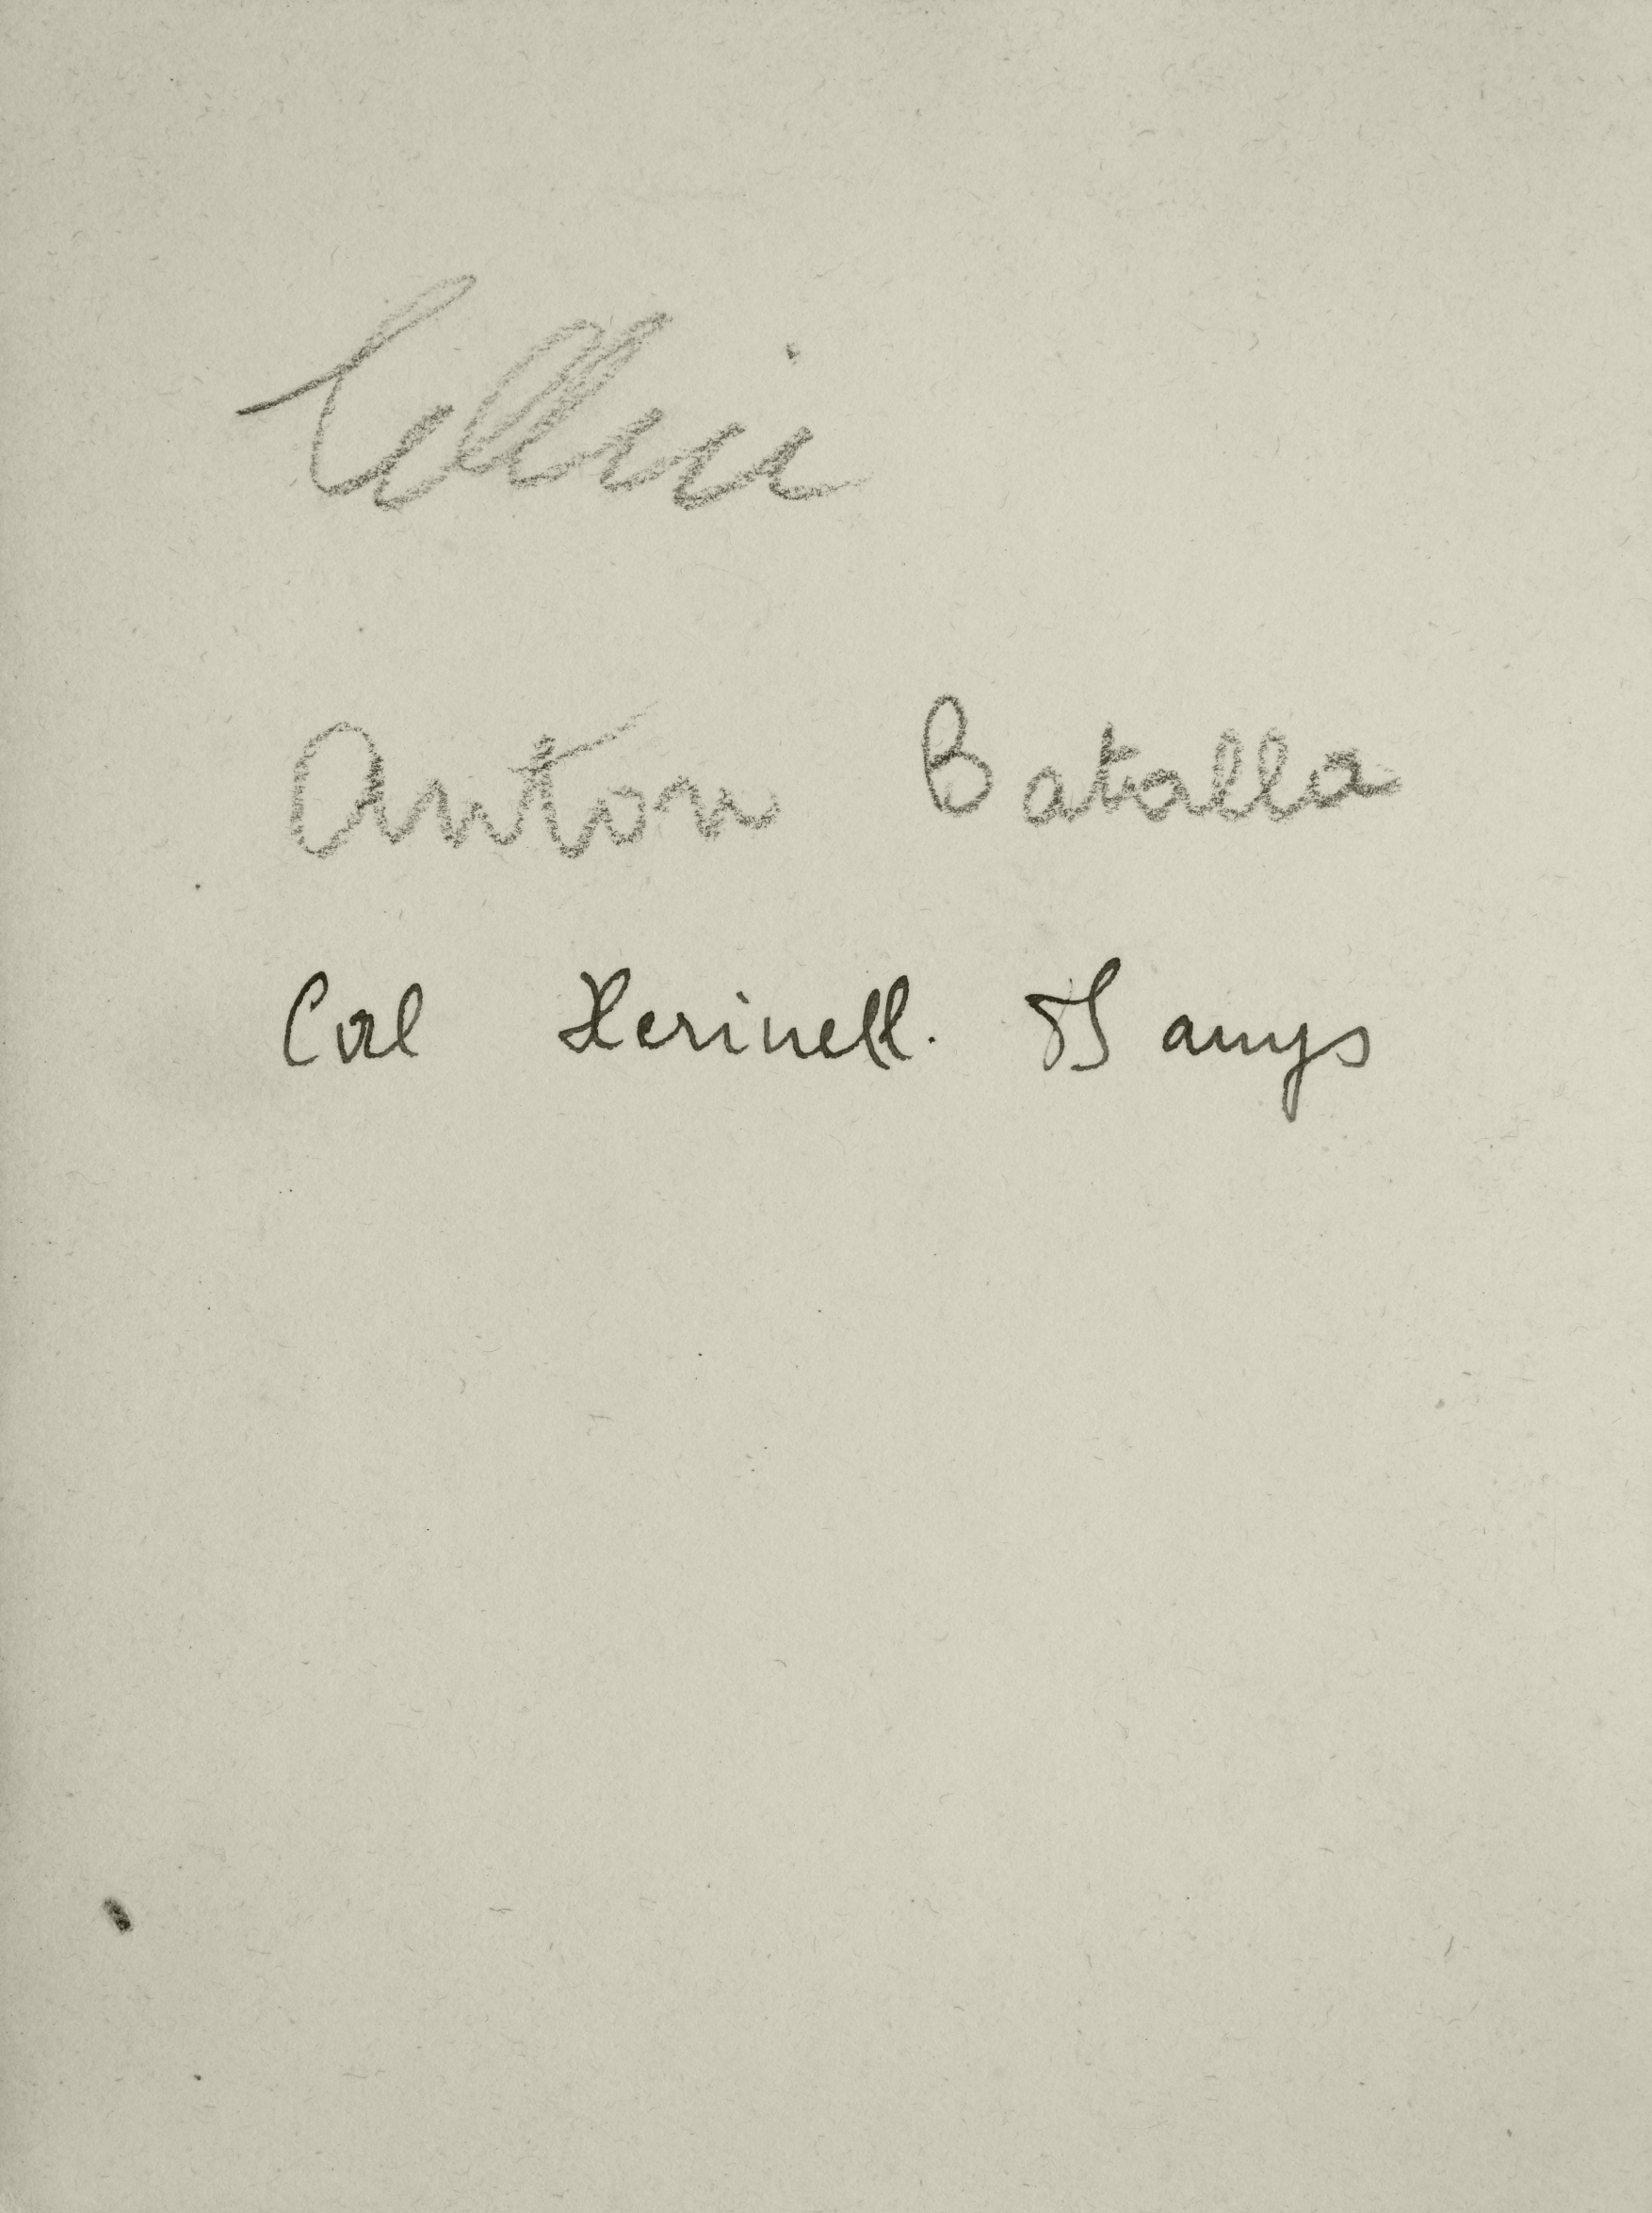 Cellini
Anton Batalla
Cal Xerinell. 75 anys